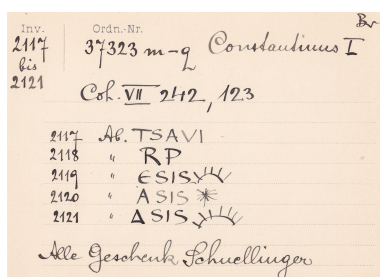 Br
Inv. Ordn.-Nr.
2117 37323 m-q Constantinus I
bis
2121
Coh. VII 242, 123
2117 Ab. TSAVI
2118 " RP
2119 " ESIS
2120 " ASIS
2121 " ΔSIS
Alle Geschenk Schnellinger